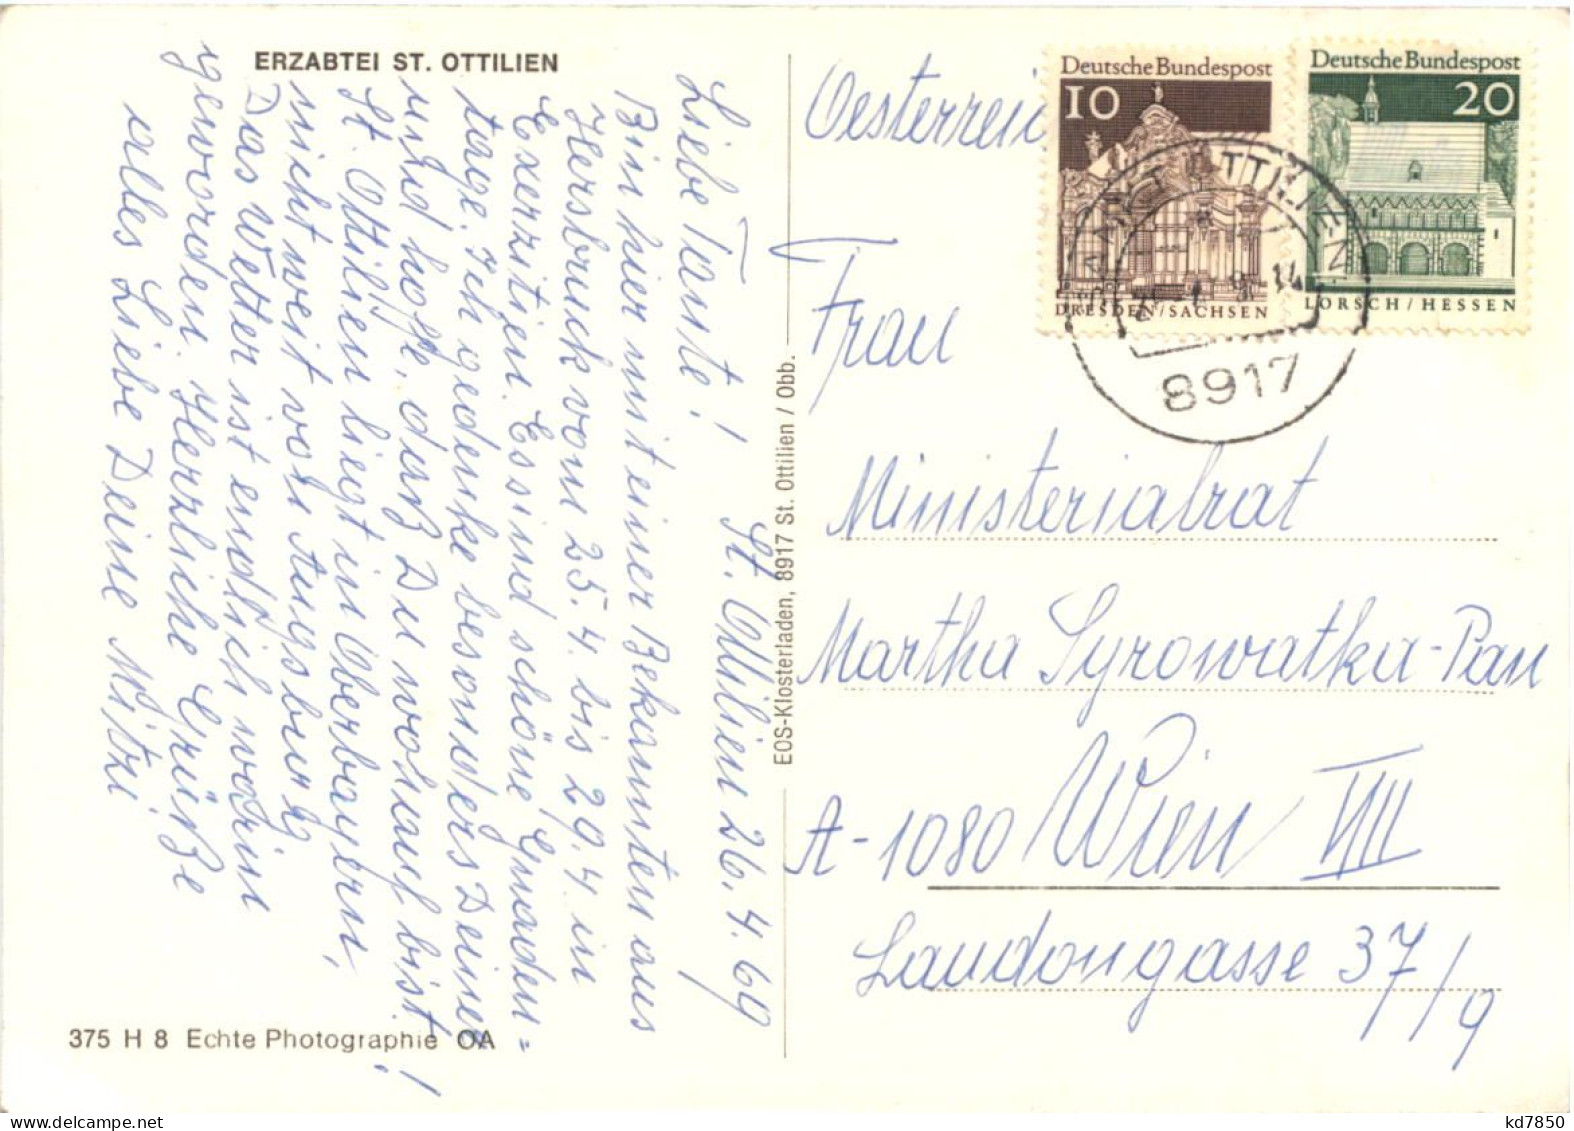 ERZABTEI ST. OTTILIEN
Liebe Tante! St. Ottilien 26.4.69
Bin hier mit einer Bekannten aus
Hersbruck vom 25.4. bis 29.4. in
Exerzitien. Es sind schöne Gnaden=
tage. Ich gedenke besonders Deiner
und hoffe, daß Du wohlauf bist!
St. Ottilien liegt in Oberbayern,
nicht weit von Augsburg.
Das Wetter ist endlich warm
geworden. Herzliche Grüße
alles Liebe Deine Mitzi
375 H 8 Echte Photographie OA
EOS-Klosterladen, 8917 St. Ottilien / Obb.
Deutsche Bundespost
10
DRESDEN/SACHSEN
Deutsche Bundespost
20
LORSCH/HESSEN
ST. OTTILIEN
8917
Oesterreic
Frau
Ministerialrat
Martha Syrowatka-Pau
A-1080 Wien VIII
Laudongasse 37/9
kd7850